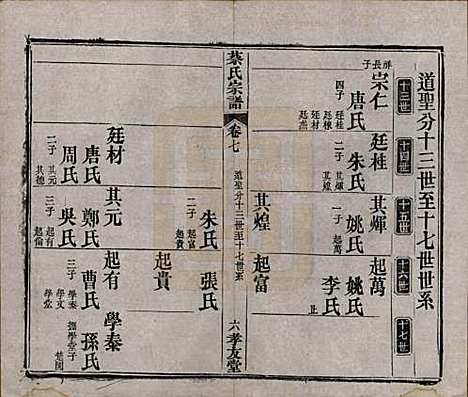 道聖分十三世至十七世世系
十三世
十四世
十五世
十六世
十七世
長子
宗仁
唐氏
四子
廷桂
廷棟
廷材
廷燕
廷桂
朱氏
二子
其輝
其煌
其輝
姚氏
一子
起萬
起萬
姚氏
李氏
止
其煌
朱氏
二子
起富
起貴
起富
張氏
起貴
蔡氏宗譜
卷七
道聖分十三世至十七世系
六
孝友堂
廷材
唐氏
周氏
二子
其元
其德
其元
鄭氏
吳氏
三子
起有
起倫
起有
曹氏
三子
學泰
學文
學堂
學泰
孫氏
撫學堂子